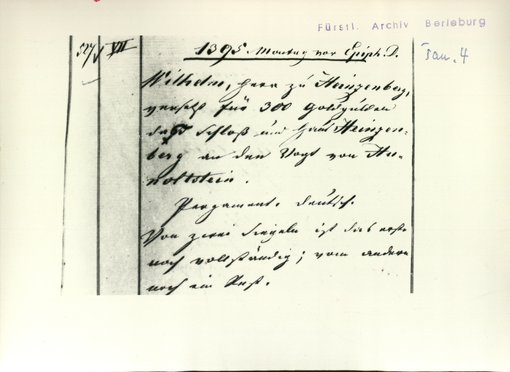 Fürstl. Archiv Berleburg
Jan. 4
VII
1395 Montag vor Epiph. D.
Wilhelm, Herr zu Heinzenberg,
versetzt für 300 Goldgulden
das Schloß und Haus Heinzen-
berg an den Vogt von Hu-
noltstein.
Pergament. Deutsch.
Von zwei Siegeln ist das erste
noch vollständig; vom andern
noch ein Rest.